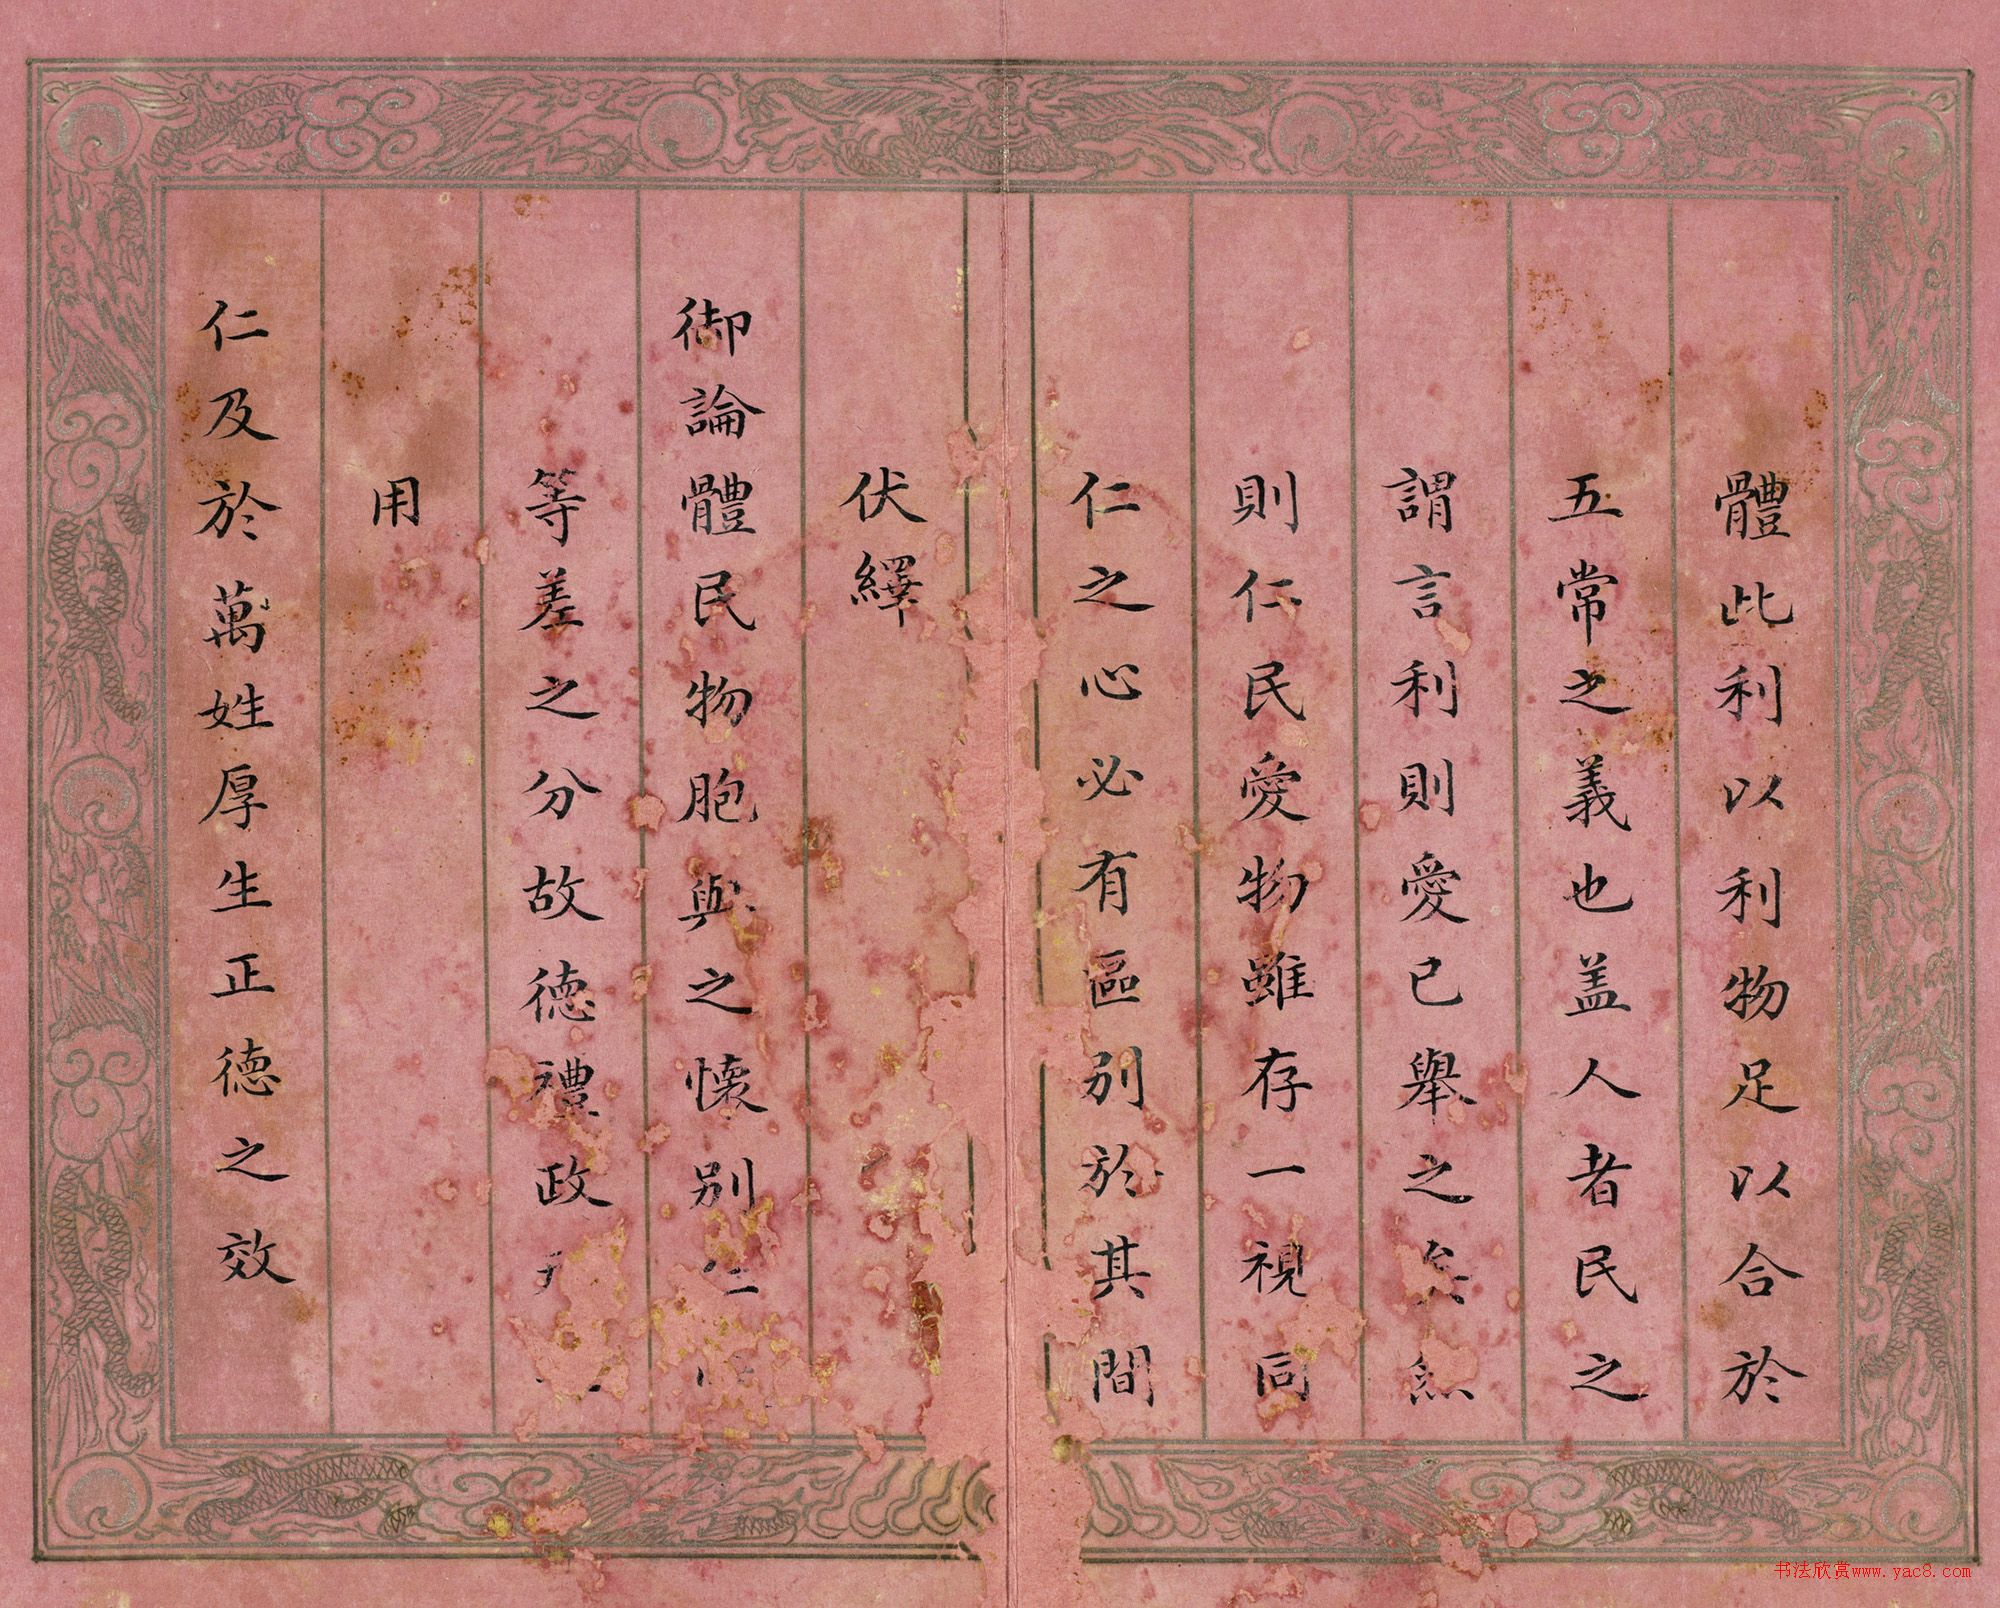 體此利以利物足以合於
五常之義也盖人者民之
謂言利則愛已舉之矣然
則仁民愛物雖存一視同
仁之心必有區别於其間
伏繹
御論體民物胞與之懷别仁
等差之分故德禮政
用
仁及於萬姓厚生正德之效
书法欣赏www.yac8.com